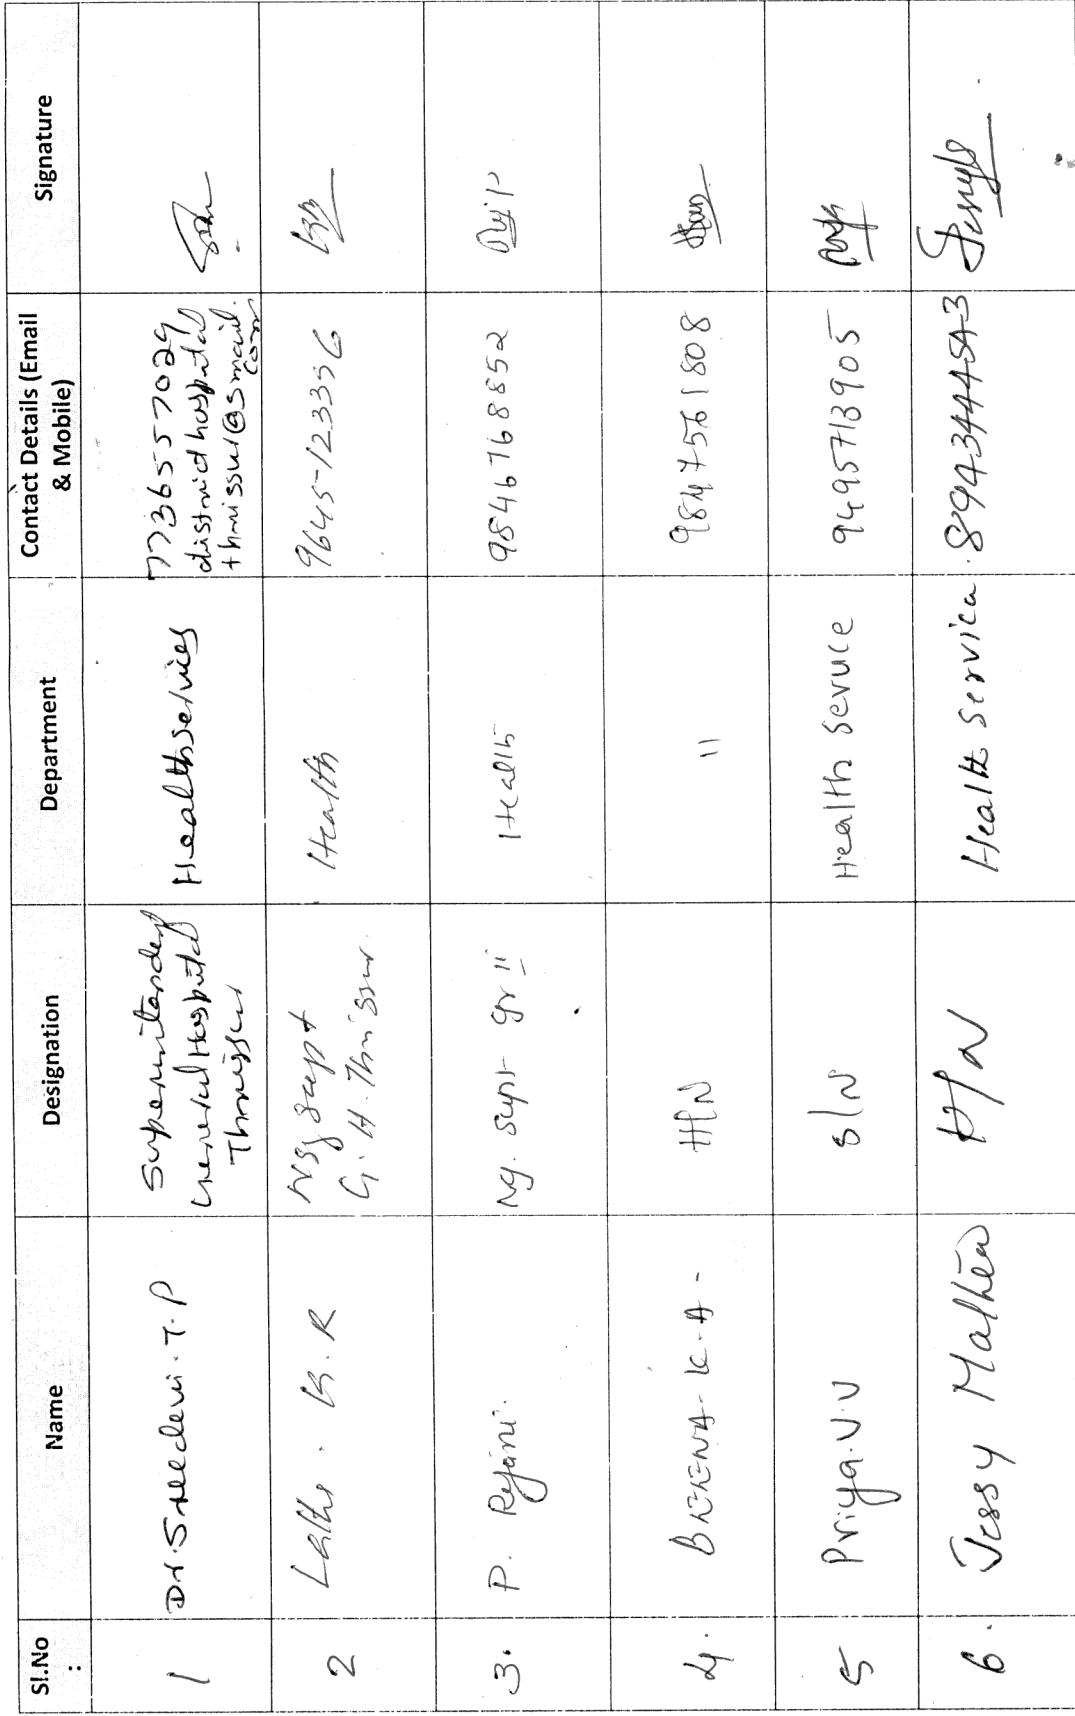 Sl.No : Name Designation Department Contact Details (Email & Mobile) Signature
1 Dr. Sreedevi. T. P Superintendent General Hospital Thrissur Health services 7736557029 districthospitalthrissur@gmail.com
2 Latha . K. R Nsg Supt G. H. Thrissur Health 9645-123356
3. P. Rejani. Ng. Supt Gr II Health 9846768852
4. BEENA K. A - H/N 11 9847561808
5 Priya. V. V S/N Health Service 9495713905
6. Jessy Mathew H/N Health service. 8943444543